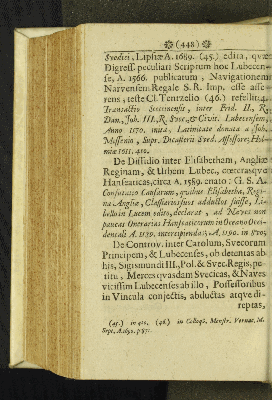 (448)
Svedici, Lipsiæ A. 1689. (45.) edita, quæc
Digress. peculiari Scriptum hoc Lubecen-
se, A. 1566. publicatum, Navigationem
Narvensem Regale S. R. Imp. esse asse-
rens, teste Cl. Tentzelio (46.) refellit.
Transactio Stetinensis, inter Frid. II, R.
Dan., Joh. III, R. Svec. & Civit. Lubecensem,
Anno 1570. inita, Latinitate donata a Joh.
Messenio, Supr. Dicasterii Svec. Assessore; Hol-
miæ 1611. 4to.
De Dissidio inter Elisabetham, Angliæ
Reginam, & Urbem Lubec, cæterasqve
Hanseaticas, circa A. 1589. enato: G. S. A.
Confutatio Causarum, quibus Elisabetha, Regi-
na Angliæ, Classiariis ius adductos suisse, Li-
bello in Lucem edito, declarat, ad Naves non
paucas Onerarias Hanseaticorum in Oceano Occi-
dentali A. 1589. intercipiendas; A. 1590. in 8vo;
De Controv. inter Carolum, Svecorum
Principem, & Lubecenses, ob detentas ab
his, Sigismundi III, Pol. & Svec. Regis, pe-
titu, Merces qvasdam Svecicas, & Naves
vicissim Lubecenses ab illo, Possessoribus
in Vincula conjectis, abductas atqve di-
reptas,
(45.) in 4to. (46.) in Colloq. Menstr. Vernac. M.
Sept. A. 1691. p. 971.